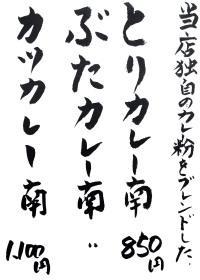 当店独自のカレー粉をブレンドした。
とりカレー南 850円
ぶたカレー南 〃
カツカレー南 1,100円